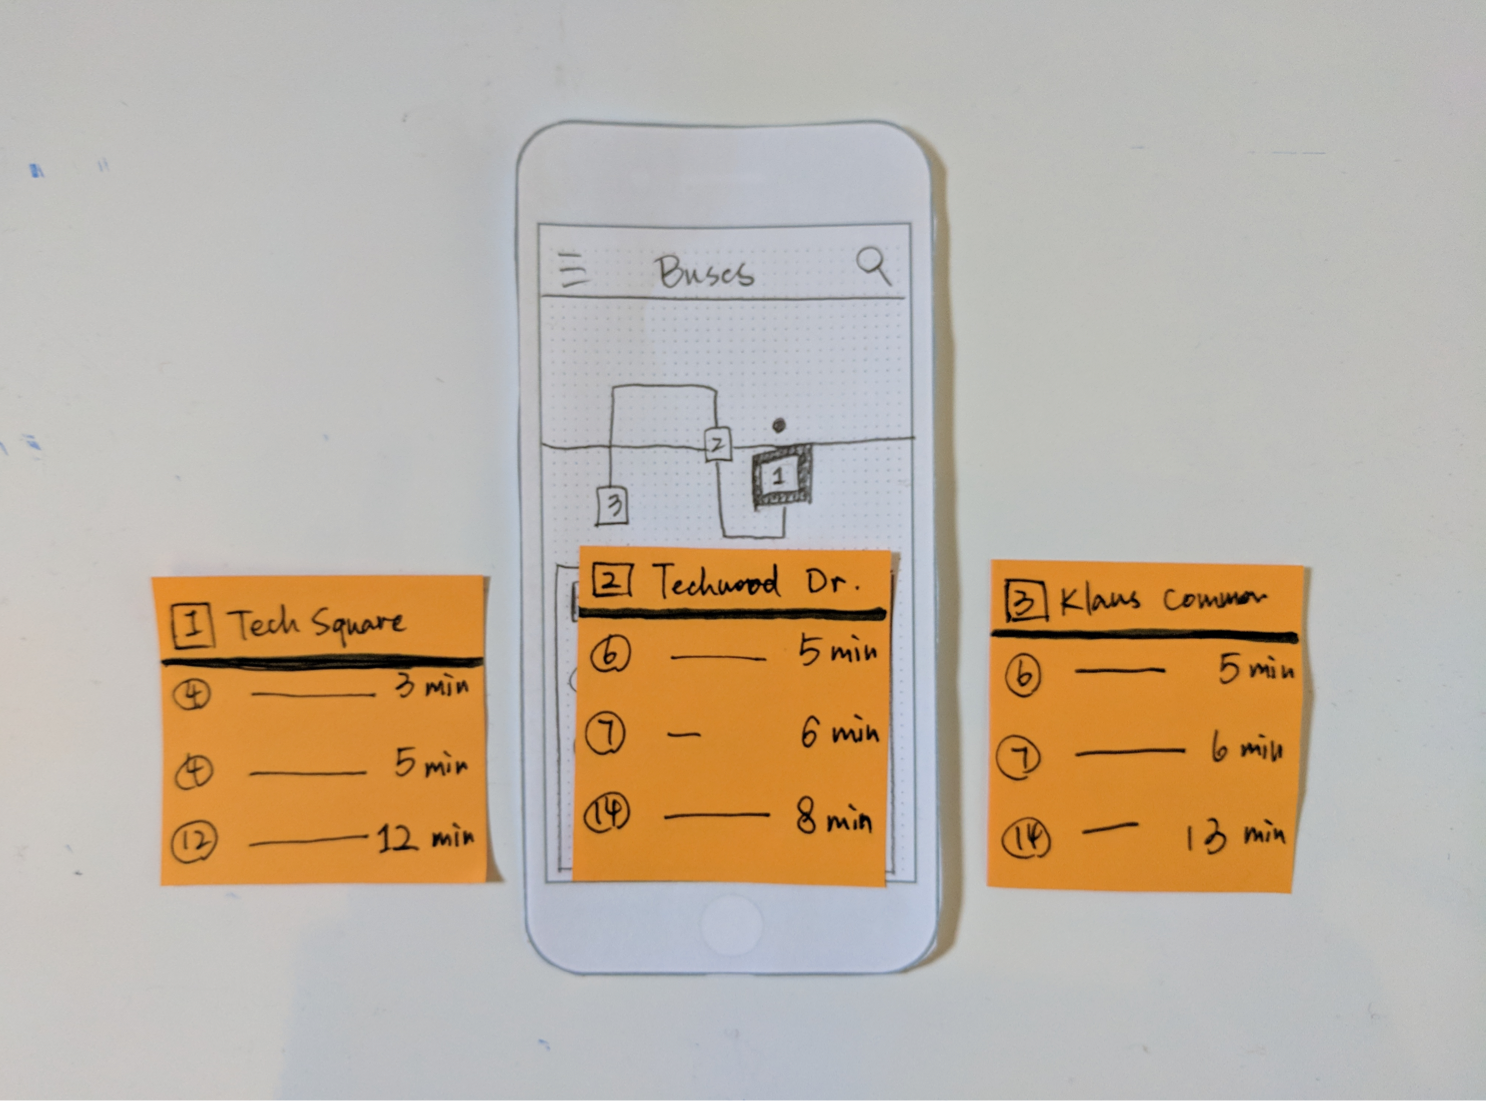 Buses
2
1
3
1 Tech Square
4 3 min
4 5 min
12 12 min
2 Techwood Dr.
6 5 min
7 6 min
14 8 min
3 Klaus Common
6 5 min
7 6 min
14 13 min